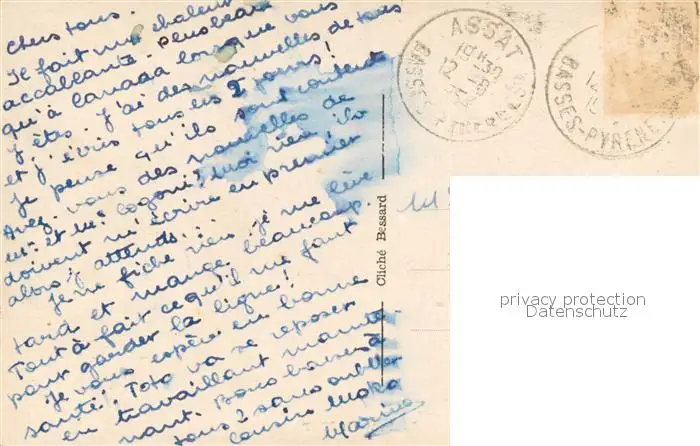 Chers tous.
Il fait une chaleur
accablante. Pensez
qu'à Canada lorsque vous
y êtes. J'ai des nouvelles de tous
et j'écris tous les 2 jours!
Je pense qu'ils sont contents
Avez-vous des nouvelles de
Mr et Me moi rien ils
doivent m'écrire en premier
alors j'attends...
Je ne fiche rien, je me lève
tard et mange beaucoup.
Tout à fait ce qu'il me faut
pour garder la ligne!
Je vous espère en bonne
santé, Toto va se reposer
en travaillant mainte-
nant. Bons baisers à
tous 2 sans oublier
cousin Moka
ASSAT
19H30
12
BASSES-PYRENEES
12
BASSES-PYRENEE
Cliché Bessard
privacy protection
Datenschutz